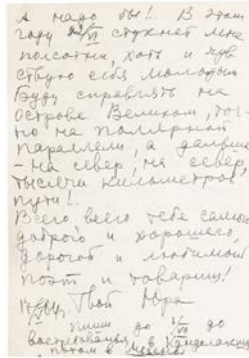 А надо бы!.. В этом
году 22/VI стукнет мне
полсотни, хоть и чув-
ствую себя молодым
Буду справлять на
Острове Великом, точ-
но на полярной
параллели, а дальше
– на север, на север,
тысячи километров
пути!..
Всего всего тебе самого
доброго и хорошего,
дорогой и любимый
поэт и товарищ!
Твой Юра
пиши до до
востребования, Кандалакша
потом в